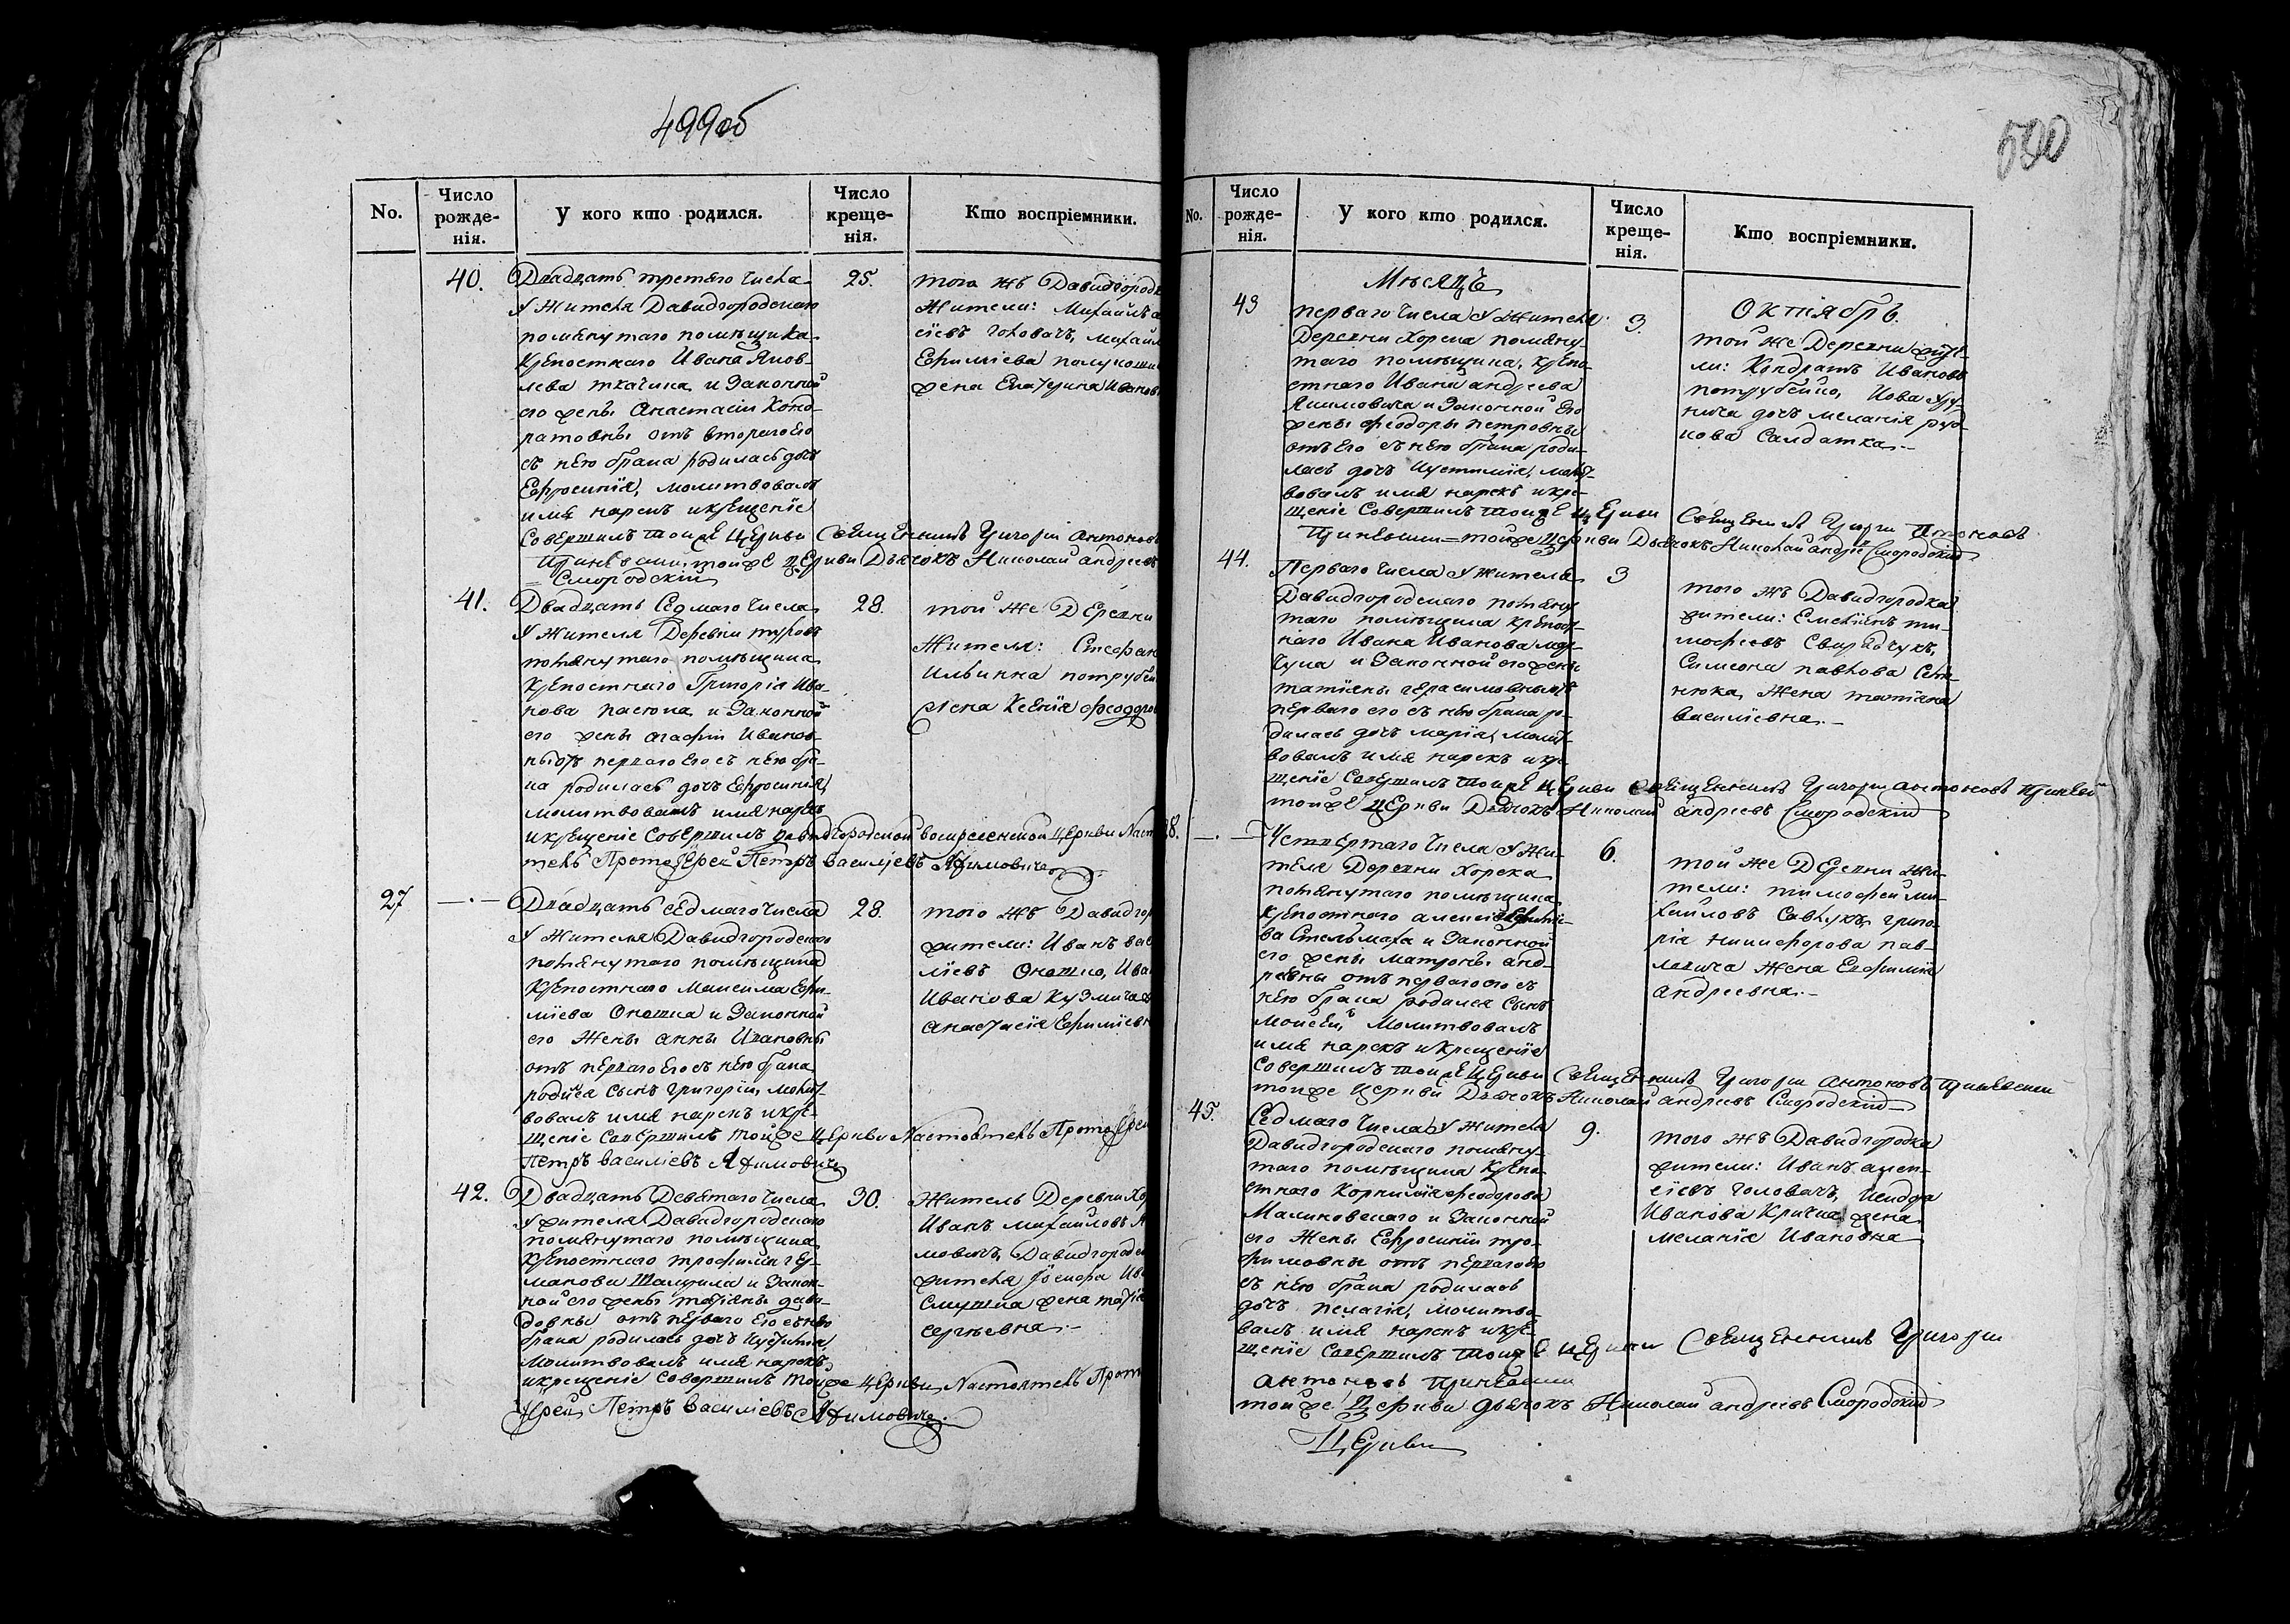 499об
No.
Число рожде-нія.
У кого кто родился.
Число креще-нія.
Кто воспріемники.
40.
Двадцать третяго Числа
У Жителя Давидгородскаго
помянутаго помѣщика
Крѣпостнаго Ивана Яков-
лева ткачика и Законной
его жены Анастасіи Конд-
ратовны отъ втораго Его
съ нею брака родилась дочь
Ефросинія, молитвовалъ
имя нарекъ и крещеніе
Совершилъ тоиже Церкви Священникъ Григорій Антоновъ
При немъ тойже Церкви Дьячокъ Николай андреевъ
Смородскій
25.
того жъ Давидгородк
Жители: Михаилъ а
сіевъ Головачъ, михаил
Ефиміева полукоши
жена Екатерина Иванов
41.
Двадцать Седмаго Числа
У Жителя Деревни туровъ
помянутаго помѣщика
Крѣпостнаго Григорія Ива-
нова пасюка и Законной
его жены агафіи Иванов-
ны отъ перваго Его съ нею бра-
ка родилась дочь Ефросинія,
молитвовалъ имя нарекъ
и крещеніе Совершилъ давидгородской воскресенской Церкви Наст
тель Протоіерей Петръ василіевъ Якимовичъ
28.
той же Деревни
Жители: Стефан
Ильинка потрубей
жена Ксенія феодоро
27
Двадцать седмаго Числа
У Жителя Давидгородскаго
помянутаго помѣщика
Крѣпостнаго Максима Ефи-
міева Оношка и Законной
его Жены анны Ивановны
отъ перваго Его съ нею брака
родился сынъ григорій, молит
вовалъ имя нарекъ и кре-
щеніе Совершилъ тойже Церкви Настоятель Протоіерей
Петръ василіевъ Якимовичъ
28.
того жъ Давидгор
жители: Иванъ вас
ліевъ Оношко, Ива
Иванова Кузмича ж
анастасія Ефиміевн
42.
Двадцать Девятаго Числа
У жителя Давидгородскаго
помянутаго помѣщика
Крѣпостнаго трофима гер-
манова Шацила и Закон-
ной его жены татіяны дави-
довны отъ перваго Его съ нею
брака родилась дочь Іустинія
молитвовалъ имя нарекъ
и крещеніе Совершилъ тойже Церкви Настоятель Прот
іерей Петръ василіевъ Якимовичъ.
30.
Житель Деревни Хор
Иванъ михайловъ А
мовичъ, Давидгородск
жителя Іосифа Ива
Смушка жена татія
сергѣевна.
500
No.
Число рожде-нія.
У кого кто родился.
Число креще-нія.
Кто воспріемники.
Мѣсяцъ
Октябрь.
43
перваго Числа У Жителя
Деревни Хорска помяну-
таго помѣщика, крѣпо-
стнаго Ивана андреева
Якимовича и Законной Его
жены феодоры петровны
отъ Его съ нею брака роди-
лась дочь Іустинія, молит
вовалъ имя нарекъ и кре-
щеніе Совершилъ тоиже Церкви Священникъ Григорій Антоновъ
При немъ тойже Церкви Дьячокъ Николай андрее Смородскій
3.
той же Деревни жите-
ли: Кондратъ Ивановъ
потрубейко, Иова
дочь меланія
Салдатка.
44.
Перваго Числа У Жителя
Давидгородскаго помяну
таго помѣщика Крѣпост-
наго Ивана Иванова
и Законной его жены
татіяны герасимовны отъ
перваго его съ нею брака ро-
дилась дочь марія, молит
вовалъ имя нарекъ и кре
щеніе Совершилъ тоиже Церкви Священникъ Григорій антоновъ При немъ
тойже Церкви Дьячокъ Николай андреевъ Смородскій
3
того жъ Давидгородка
жители: Емеліянъ ти-
мофеевъ Свиридчукъ,
Симеона павлова
Жена татіяна
василіевна.
28.
Четвертаго Числа У Жи-
теля Деревни Хорска
помянутаго помѣщика
Крѣпостнаго алексія
ва Стельмаха и Законной
его жены матроны анд-
реевны отъ перваго его съ
нею брака родился сынъ
Мойсей, Молитвовалъ
имя нарекъ и Крещеніе
Совершилъ тоиже Церкви Священникъ Григорій антоновъ При немъ
тойже Церкви Дьячокъ Николай андреевъ Смородскій
6.
той же Деревни Жи-
тели: тимофей ми-
хайловъ Савчукъ, григо-
рія никифорова пав-
ловича Жена Евфимія
андреевна.
45.
Седмаго Числа У Жителя
Давидгородскаго помяну-
таго помѣщика Крѣпо-
стнаго Корнилія феодорова
Малиновскаго и Законной
его Жены Ефросиніи тро-
фимовны отъ перваго Его
съ нею брака родилась
дочь пелагія, молитво-
валъ имя нарекъ и кре-
щеніе Совершилъ тоиже Церкви Священникъ Григорій
антоновъ При немъ
тойже Церкви дьячокъ Николай андреевъ Смородскій
Церкви
9.
того жъ Давидгородка
жители: Иванъ алек-
сіевъ Головачъ, Исидора
Иванова Кричка жена
меланія Ивановна